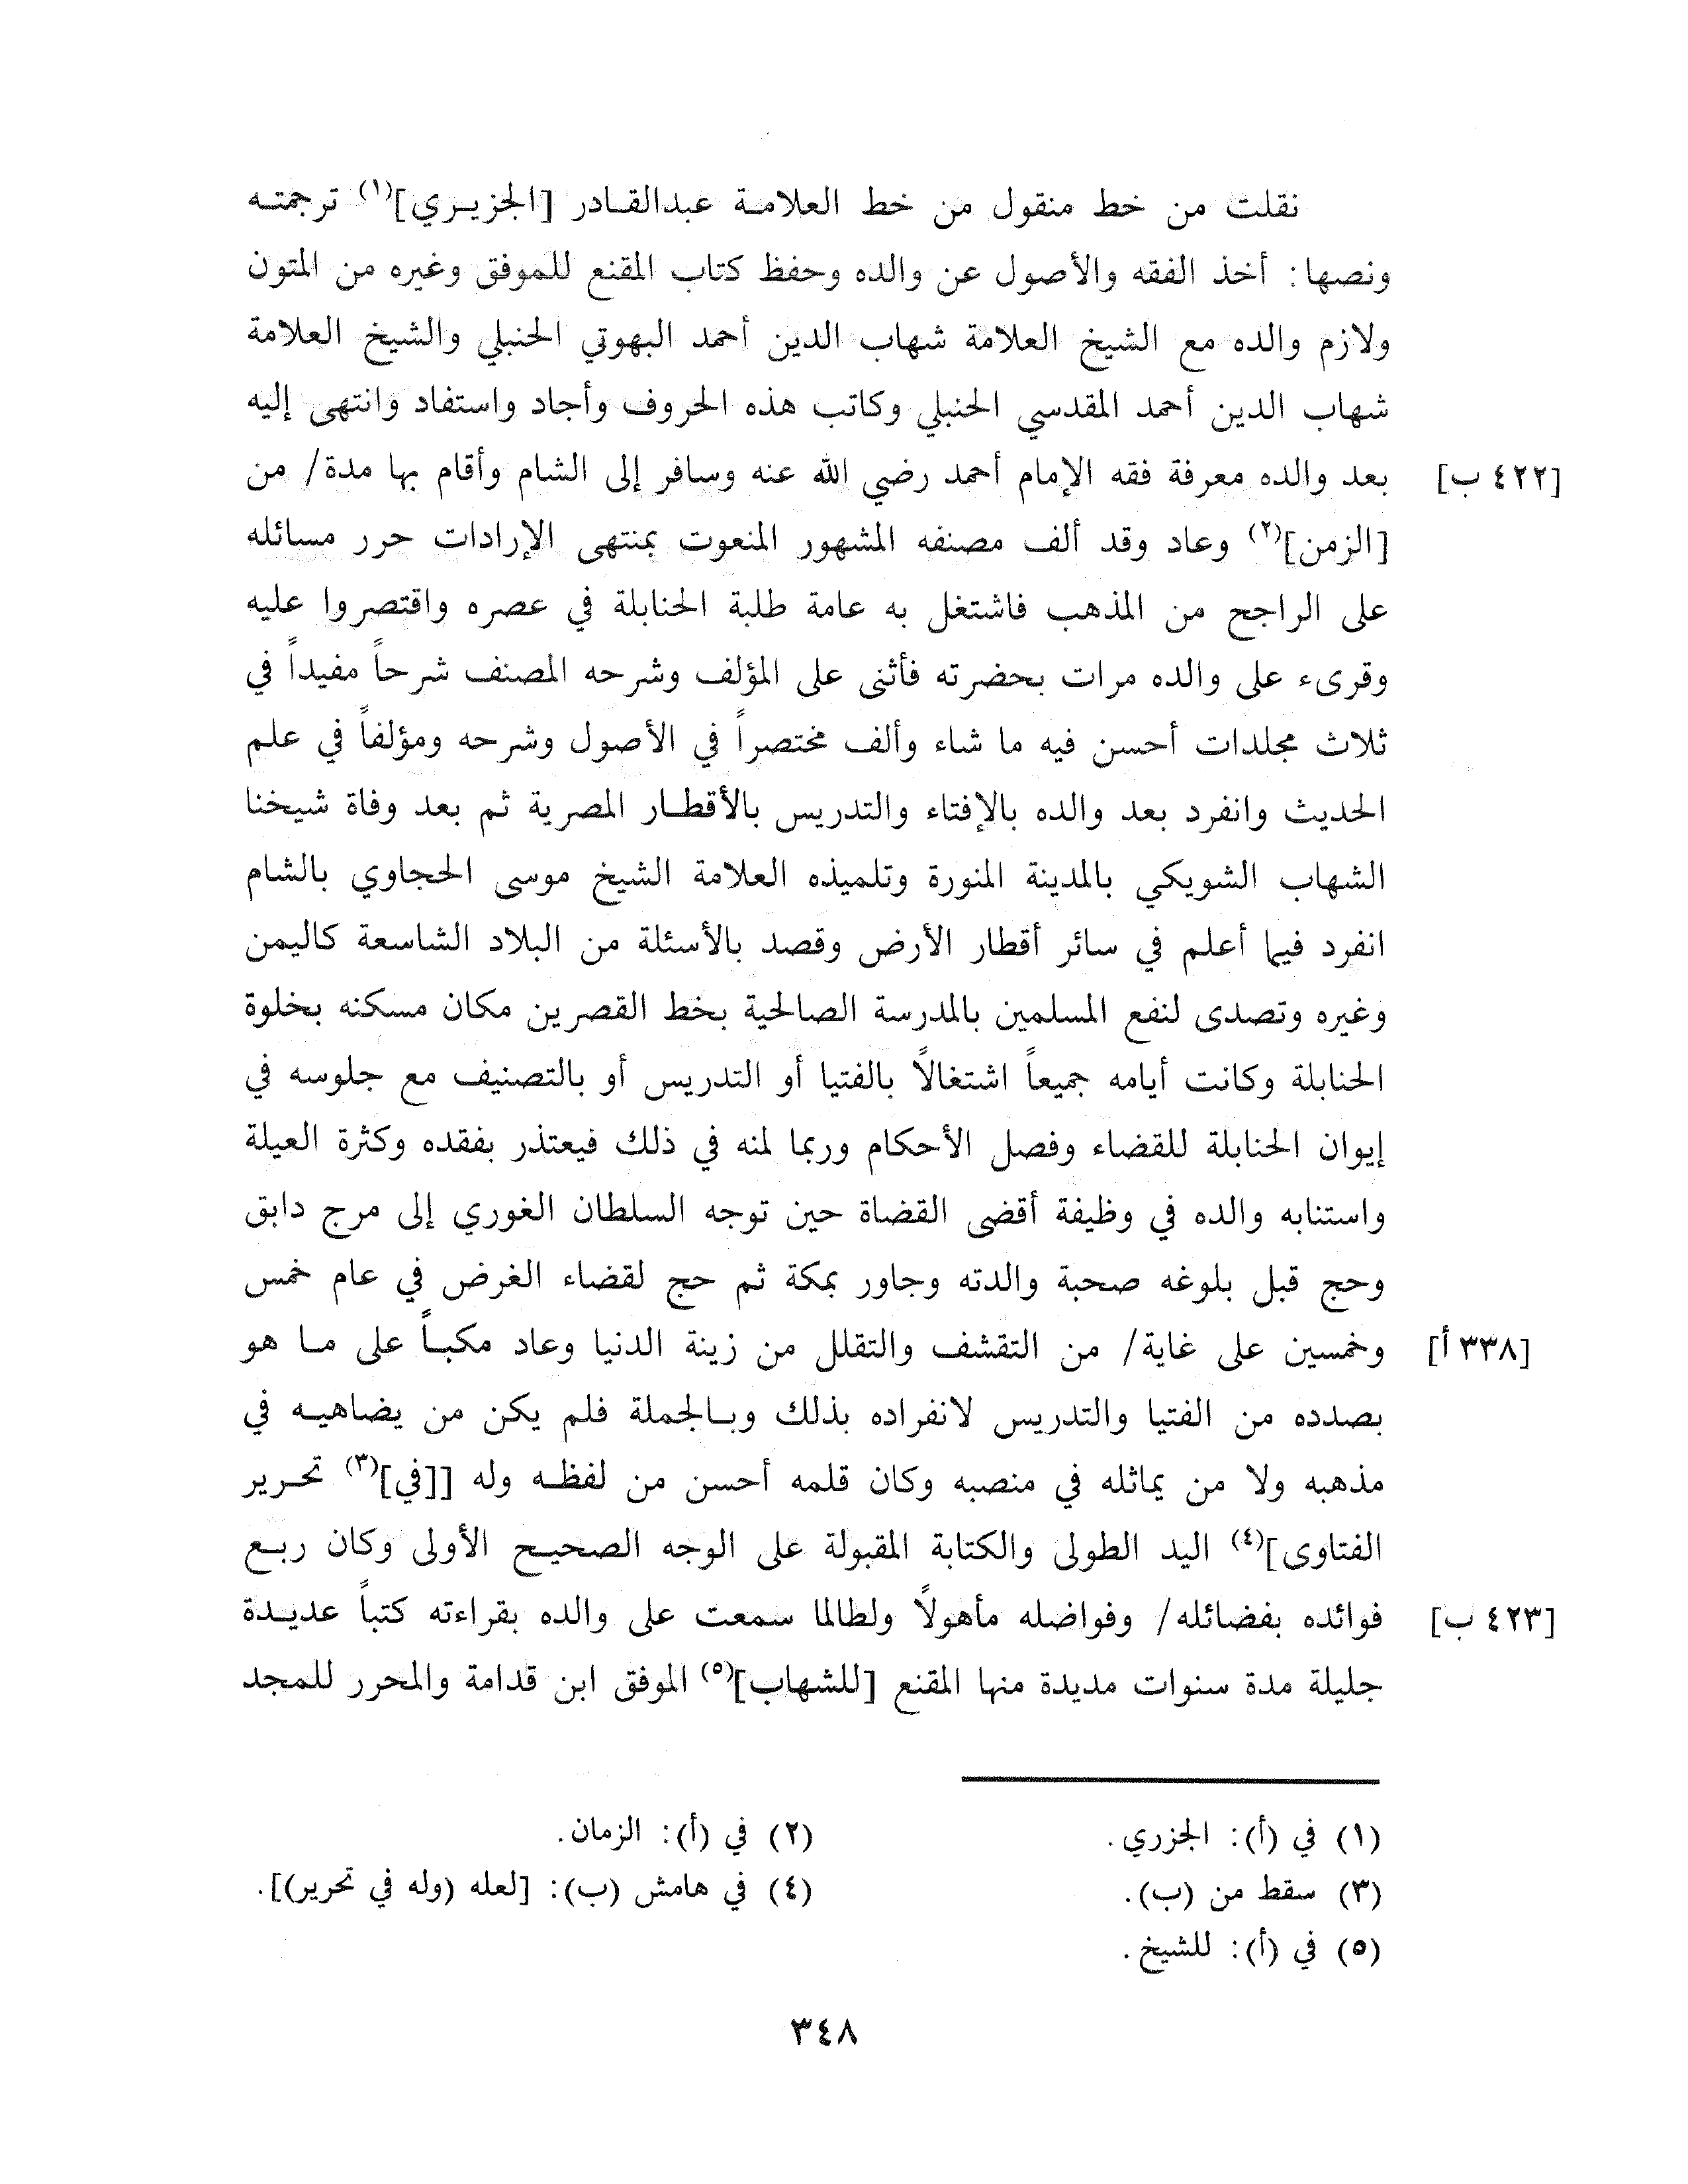 نقلت من خط منقول من خط العلامة عبدالقادر [الجزيري](١) ترجمته
ونصها: أخذ الفقه والأصول عن والده وحفظ كتاب المقنع للموفق وغيره من المتون
ولازم والده مع الشيخ العلامة شهاب الدين أحمد البهوتي الحنبلي والشيخ العلامة
شهاب الدين أحمد المقدسي الحنبلي وكاتب هذه الحروف وأجاد واستفاد وانتهى إليه
بعد والده معرفة فقه الإمام أحمد رضي الله عنه وسافر إلى الشام وأقام بها مدة/ من [٤٢٢ ب]
[الزمن](٢) وعاد وقد ألف مصنفه المشهور المنعوت بمنتهى الإرادات حرر مسائله
على الراجح من المذهب فاشتغل به عامة طلبة الحنابلة في عصره واقتصروا عليه
وقرىء على والده مرات بحضرته فأثنى على المؤلف وشرحه المصنف شرحاً مفيداً في
ثلاث مجلدات أحسن فيه ما شاء وألف مختصراً في الأصول وشرحه ومؤلفاً في علم
الحديث وانفرد بعد والده بالإفتاء والتدريس بالأقطار المصرية ثم بعد وفاة شيخنا
الشهاب الشويكي بالمدينة المنورة وتلميذه العلامة الشيخ موسى الحجاوي بالشام
انفرد فيما أعلم في سائر أقطار الأرض وقصد بالأسئلة من البلاد الشاسعة كاليمن
وغيره وتصدى لنفع المسلمين بالمدرسة الصالحية بخط القصرين مكان مسكنه بخلوة
الحنابلة وكانت أيامه جميعاً اشتغالاً بالفتيا أو التدريس أو بالتصنيف مع جلوسه في
إيوان الحنابلة للقضاء وفصل الأحكام وربما لمنه في ذلك فيعتذر بفقده وكثرة العيلة
واستنابه والده في وظيفة أقضى القضاة حين توجه السلطان الغوري إلى مرج دابق
وحج قبل بلوغه صحبة والدته وجاور بمكة ثم حج لقضاء الغرض في عام خمس
وخمسين على غاية/ من التقشف والتقلل من زينة الدنيا وعاد مكباً على ما هو [٣٣٨ أ]
بصدده من الفتيا والتدريس لانفراده بذلك وبالجملة فلم يكن من يضاهيه في
مذهبه ولا من يماثله في منصبه وكان قلمه أحسن من لفظه وله [[في](٣) تحرير
الفتاوى](٤) اليد الطولى والكتابة المقبولة على الوجه الصحيح الأولى وكان ربع
فوائده بفضائله/ وفواضله مأهولاً ولطالما سمعت على والده بقراءته كتباً عديدة [٤٢٣ ب]
جليلة مدة سنوات مديدة منها المقنع [للشهاب](٥) الموفق ابن قدامة والمحرر للمجد
(١) في (أ): الجزري. (٢) في (أ): الزمان.
(٣) سقط من (ب). (٤) في هامش (ب): [لعله (وله في تحرير)].
(٥) في (أ): للشيخ.
٣٤٨